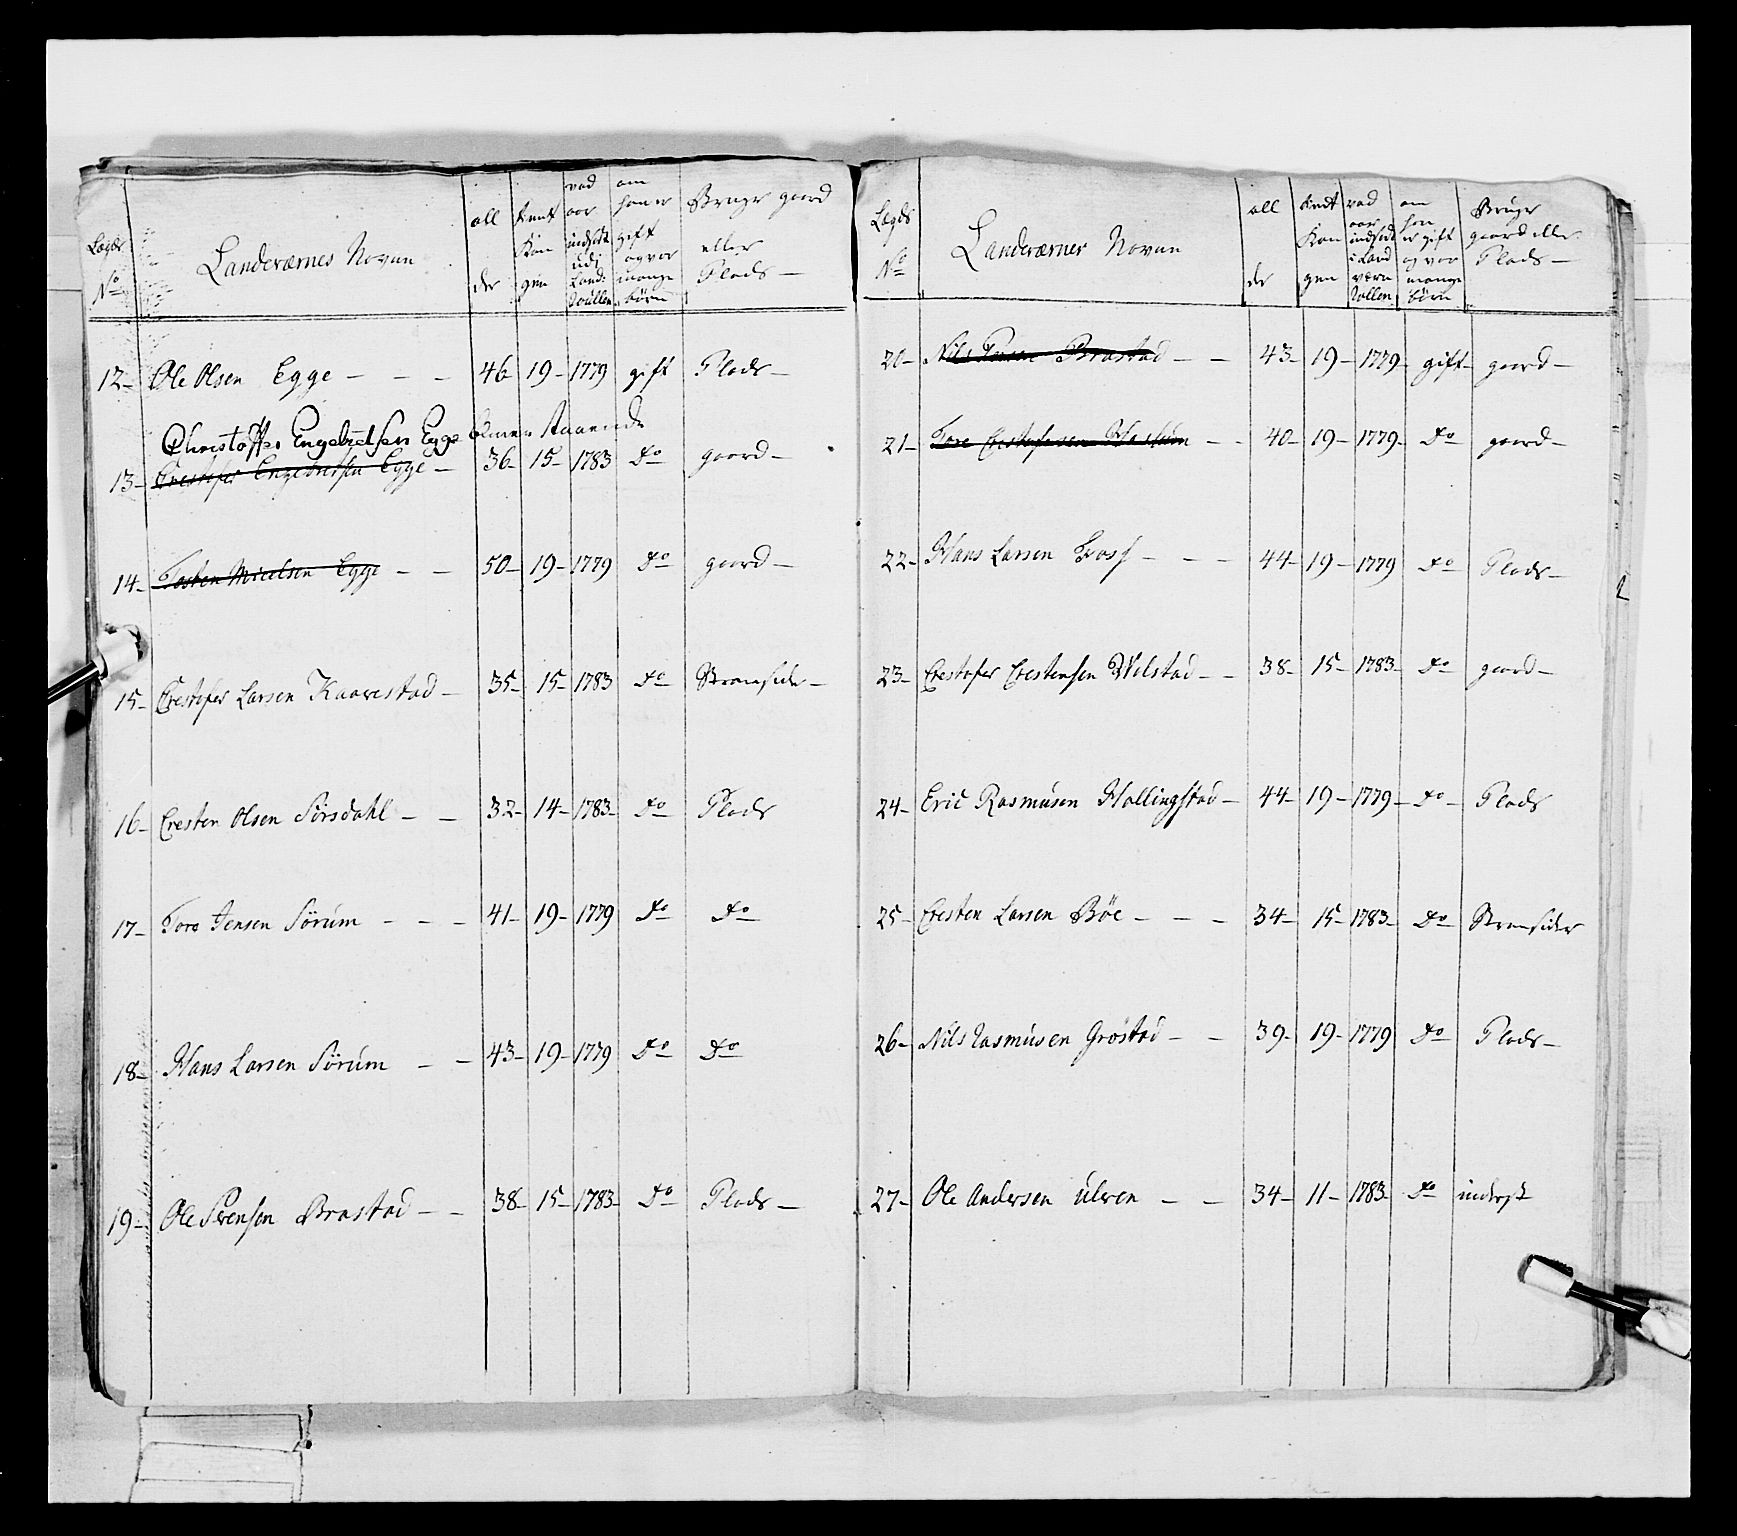 Lægds No Landeværnes Navne all der tient Kongen vad aar indsadt udj Land: Rullen om han er gift og vor mange börn Bruger gaard eller Plads —
12 — Ole Olsen Egge — — — 46 19 — 1779 gift Plads —
Christoffer Engebretsen Egge
13 — Crestofer Engebretsen Egge — 36 — 15 — 1783 Do gaard —
14 — Tosten Micelsen Egge — — 50 — 19 — 1779 Do gaard —
15 — Crestofer Larsen Kaarestad — 35 — 15 — 1783 Do Stransider —
16 — Cresten Olsen Sörsdahl — — 32 — 14 — 1783 — Do Plads
17 — Tore Jensen Sörum — — — 41 — 19 — 1779 Do Do
18 — Hans Larsen Sörum — — 43 — 19 — 1779 Do Do
19 — Ole Svensen Brastad — — 38 — 15 — 1783 — Do Plads —
Lægds No Landeværnes Navne all der tient Kongen vad aar indsadt i Land værn Rollen om han er gift og vor mange börn Bruger gaard eller Plads —
20 — Nils Brastad — — 43 — 19 — 1779 — gift — gaard —
21 — Tore Crestofersen — — 40 — 19 — 1779 — Do gaard —
22 — Hans Larsen Foss — — — 44 — 19 — 1779 Do Plads —
23 — Crestofer Crestensen Wilstad — — 38 — 15 — 1783 — Do gaard —
24 — Eric Rasmusen Hallingstad — 44 — 19 — 1779 — Do — Plads
25 — Cresten Larsen Böe — — — 34 — 15 — 1783 — Do Stransider
26 — Nils Rasmusen Gröstad — — 39 — 19 — 1779 Do Plads —
27 — Ole Andersen Ulven — — 34 — 11 — 1783 — Do inderst